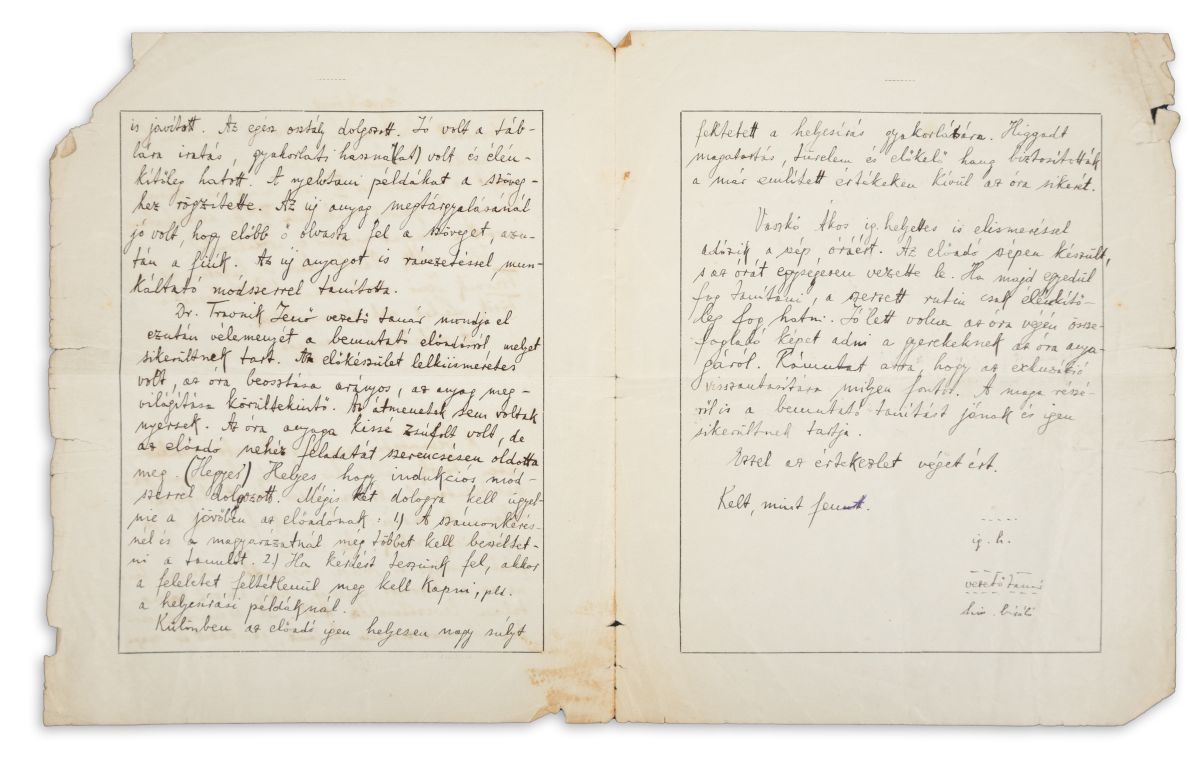 is javított. Az egész osztály dolgozott. Jó volt a táb-
lára iratás, gyakorlati használat) volt és élén-
kítőleg hatott. A nyelvtani példákat a szöveg-
hez rögzítette. Az új anyag megtárgyalásánál
jó volt, hogy előbb ő olvasta fel a szöveget, azu-
tán a fiúk. Az új anyagot is rávezetéssel mun-
káltató módszerrel tanította.
Dr. Travnik Jenő vezető tanár mondja el
ezután véleményét a bemutató előadásról, melyet
sikerültnek tart. Az előkészület lelkiismeretes
volt, az óra beosztása arányos, az anyag meg-
világítása körültekintő. Az átmenetek sem voltak
nyersek. Az óra anyaga kissé zsúfolt volt, de
az előadó nehéz feladatát szerencsésen oldotta
meg. (Hegyes) Helyes, hogy indukciós mód-
szerrel dolgozott. Mégis két dologra kell ügyel-
nie a jövőben az előadónak: 1) A számonkérés-
nél és a magyarázatnál még többet kell beszéltet-
ni a tanulót. 2) Ha kérdést teszünk fel, akkor
a feleletet feltétlenül meg kell kapni, pld.
a helyesírási példáknál.
Különben az előadó igen helyesen nagy súlyt
fektetett a helyesírás gyakorlására. Higgadt
magatartás, türelem és előkelő hang biztosították
a már említett értékeken kívül az óra sikerét.
Vaskó Ákos ig. helyettes is elismeréssel
adózik a szép óráért. Az előadó szépen készült,
s az órát egységesen vezette le. Ha majd egyedül
fog tanítani, a szerzett rutin csak élénkítő-
leg fog hatni. Jó lett volna az óra végén össze-
foglaló képet adni a gyerekeknek az óra anya-
gáról. Rámutat arra, hogy az exkuzáció
visszautasítása milyen fontos. A maga részé-
ről is a bemutató tanítást jónak és igen
sikerültnek tartja.
Ezzel az értekezlet véget ért.
Kelt, mint fennt.
ig. h.
vezető tanár